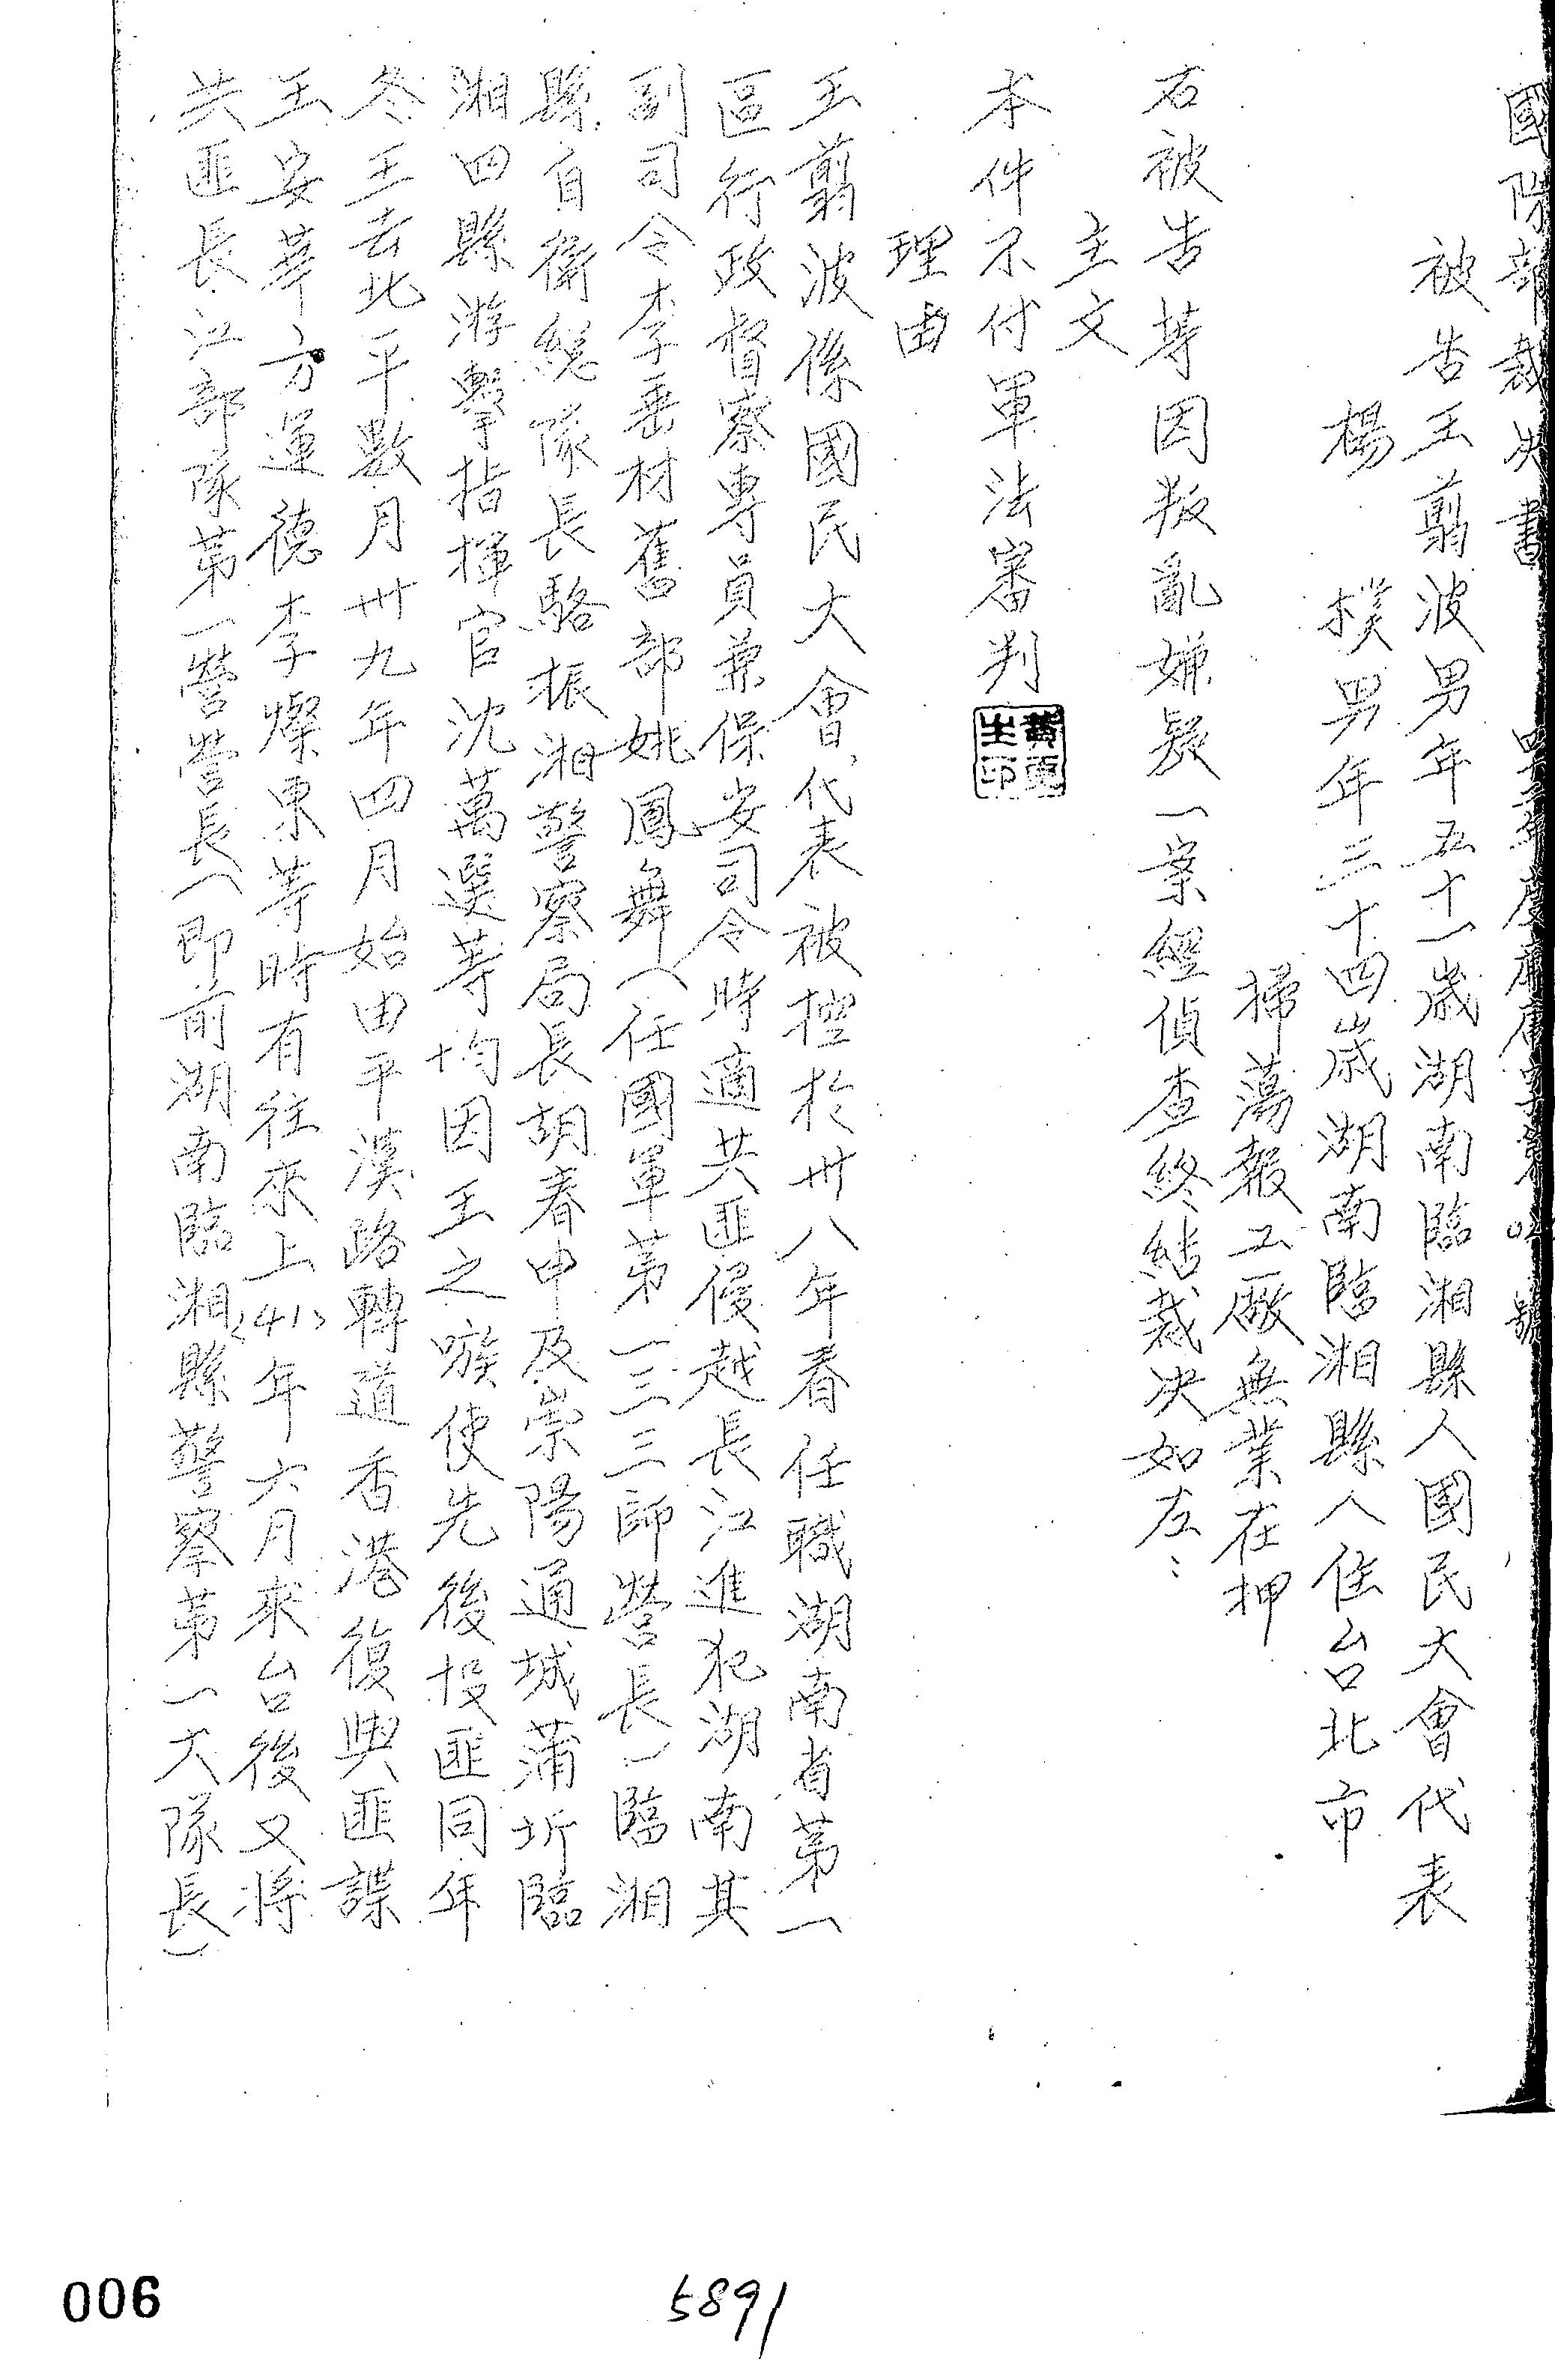 國防部裁決書
被告王翦波男年五十一歲湖南臨湘縣人國民大會代表
楊 樸男年三十四歲湖南臨湘縣人住台北市
掃蕩報工廠無業在押
右被告等因叛亂嫌疑一案經偵查終結裁決如左：
主文
本件不付軍法審判
理由
王翦波係國民大會代表被控於卅八年春任職湖南省第一
區行政督察專員兼保安司令時適共匪侵越長江進犯湖南其
副司令李垂材舊部姚鳳舞（任國軍第一三三師營長）臨湘
縣自衛總隊長駱振湘警察局長胡春申及崇陽通城蒲圻臨
湘四縣游擊指揮官沈萬選等均因王之嗾使先後投匪同年
冬王去北平數月卅九年四月始由平漢路轉道香港復與匪諜
王安華方運德李燦東等時有往來上41年六月來台後又將
共匪長江部隊第一營營長（即前湖南臨湘縣警察第一大隊長）
5891
006